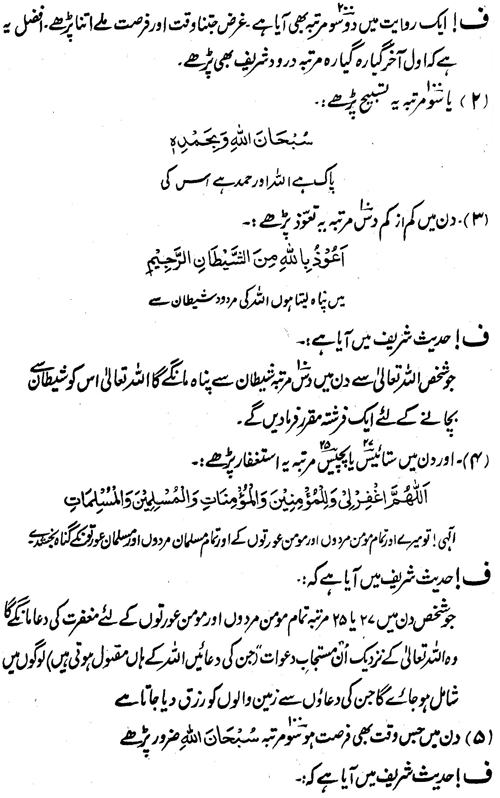 ف! ایک روایت میں دو سو ۲۰۰ مرتبہ بھی آیا ہے۔ غرض جتنا وقت اور فرصت ملے اتنا پڑھے۔ افضل یہ
ہے کہ اول آخر گیارہ گیارہ مرتبہ درود شریف بھی پڑھے۔
(۲) یا سو ۱۰۰ مرتبہ یہ تسبیح پڑھے:۔
سُبْحَانَ اللهِ وَبِحَمْدِہٖ
پاک ہے اللہ اور حمد ہے اس کی
(۳)۔ دن میں کم از کم دس ۱۰ مرتبہ یہ تعوّذ پڑھے:۔
اَعُوْذُ بِاللهِ مِنَ الشَّيْطَانِ الرَّجِيْمِ
میں پناہ لیتا ہوں اللہ کی مردود شیطان سے
ف! حدیث شریف میں آیا ہے:۔
جو شخص اللہ تعالیٰ سے دن میں دس ۱۰ مرتبہ شیطان سے پناہ مانگے گا اللہ تعالیٰ اس کو شیطان سے
بچانے کے لئے ایک فرشتہ مقرر فرمادیں گے۔
(۴)۔ اور دن میں ستائیس ۲۷ یا پچیس ۲۵ مرتبہ یہ استغفار پڑھے:۔
اَللّٰهُمَّ اغْفِرْ لِيْ وَلِلْمُؤْمِنِيْنَ وَالْمُؤْمِنَاتِ وَالْمُسْلِمِيْنَ وَالْمُسْلِمَاتِ
الٰہی! تو میرے اور تمام مومن مردوں اور مومن عورتوں کے اور تمام مسلمان مردوں اور مسلمان عورتوں کے گناہ بخشدے
ف! حدیث شریف میں آیا ہے کہ:۔
جو شخص دن میں ۲۷ یا ۲۵ مرتبہ تمام مومن مردوں اور مومن عورتوں کے لئے مغفرت کی دعا مانگے گا
وہ اللہ تعالیٰ کے نزدیک اُن "مستجاب دعوات" (جن کی دعائیں اللہ کے ہاں مقبول ہوتی ہیں) لوگوں میں
شامل ہو جائے گا جن کی دعاؤں سے زمین والوں کو رزق دیا جاتا ہے
(۵) دن میں جس وقت بھی فرصت ہو سو ۱۰۰ مرتبہ سُبْحَانَ اللهِ ضرور پڑھے
ف! حدیث شریف میں آیا ہے کہ:۔